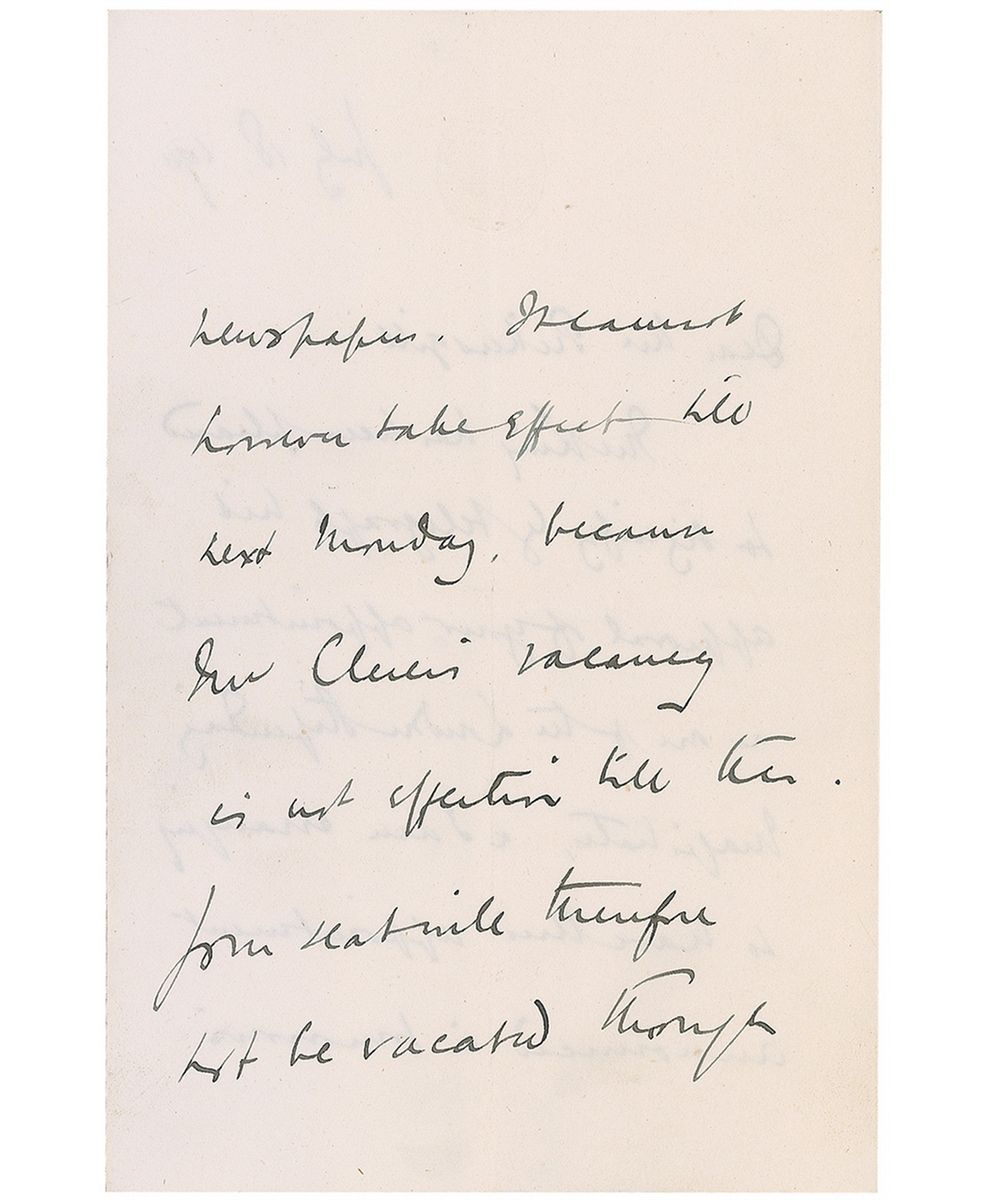 newspapers. It cannot
however take effect till
next Monday, because
Mr vacancy
is not effective till then.
Your seat will therefore
not be vacated through